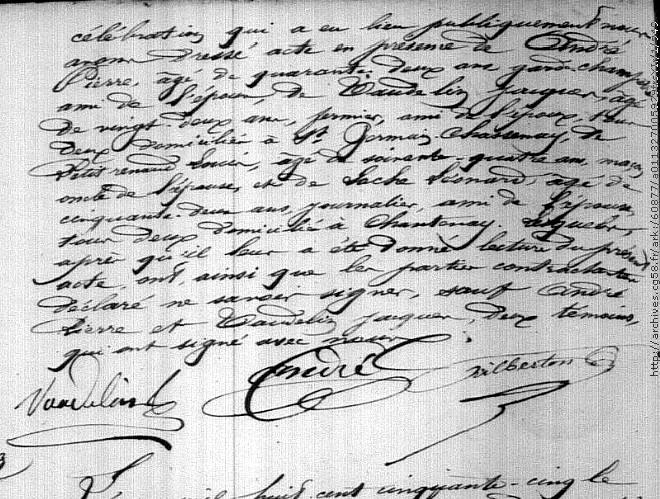 célébration qui a eu lieu publiquement, nous
avons dressé acte en présence de André
Pierre, âgé de quarante-deux ans, garde champêtre
ami de l'époux, de Vaudelin Jacques, âgé
de vingt-deux ans, fermier, ami de l'époux, tous
deux domiciliés à St Germain-Chassenay, de
Petitrenaud Louis, âgé de soixante-quatre ans, maçon
oncle de l'épouse, et de Sache Léonard, âgé de
cinquante-deux ans, journalier, ami de l'épouse,
tous deux domiciliés à Chantenay. Lesquels,
après qu'il leur a été donné lecture du présent
acte, ont, ainsi que les parties contractantes
déclaré ne savoir signer, sauf André
Pierre et Vaudelin Jacques, deux témoins,
qui ont signé avec nous
Vaudelin J
André
Gilberton
huit cent cinquante-cinq le
http://archives.cg58.fr/ark:/60877/